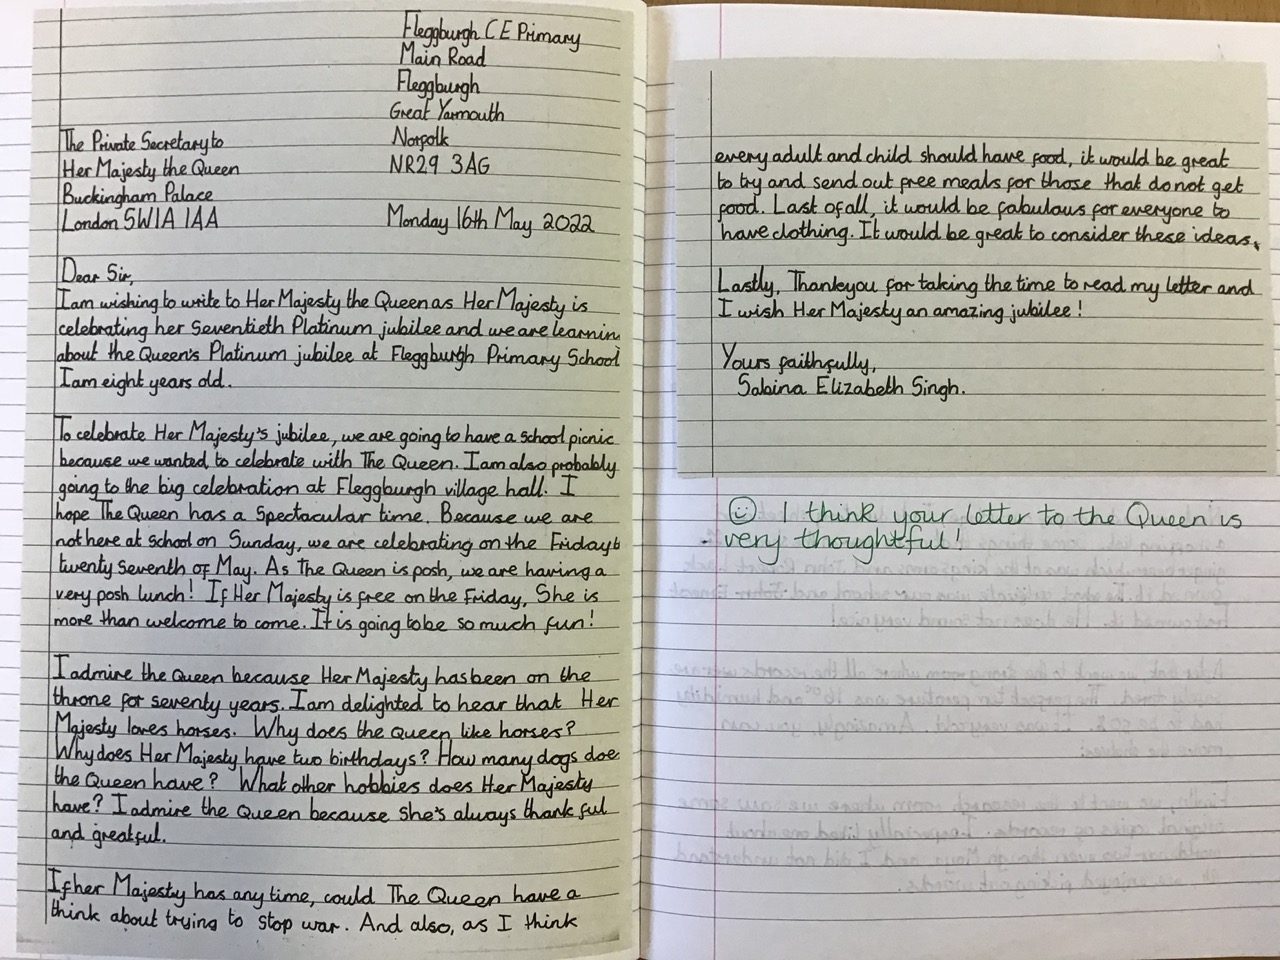 Fleggburgh C E Primary
Main Road
Fleggburgh
Great Yarmouth
Norfolk
NR29 3AG
The Private Secretary to
Her Majesty the Queen
Buckingham Palace
London SW1A 1AA
Monday 16th May 2022
Dear Sir,
I am wishing to write to Her Majesty the Queen as Her Majesty is
celebrating her Seventieth Platinum jubilee and we are learnin
about the Queen's Platinum jubilee at Fleggburgh Primary School
I am eight years old.
To celebrate Her Majesty's jubilee, we are going to have a school picnic
because we wanted to celebrate with The Queen. I am also probably
going to the big celebration at Fleggburgh village hall. I
hope The Queen has a Spectacular time. Because we are
not here at school on Sunday, we are celebrating on the Friday
twenty seventh of May. As The Queen is posh, we are having a
very posh lunch! If Her Majesty is free on the Friday, She is
more than welcome to come. It is going to be so much fun!
I admire the Queen because Her Majesty has been on the
throne for seventy years. I am delighted to hear that Her
Majesty loves horses. Why does the Queen like horses?
Why does Her Majesty have two birthdays? How many dogs doe
the Queen have? What other hobbies does Her Majesty
have? I admire the Queen because She's always thankful
and greatful.
If her Majesty has any time, could The Queen have a
think about trying to stop war. And also, as I think
every adult and child should have food, it would be great
to try and send out free meals for those that do not get
food. Last of all, it would be fabulous for everyone to
have clothing. It would be great to consider these ideas.
Lastly, Thankyou for taking the time to read my letter and
I wish Her Majesty an amazing jubilee!
Yours faithfully,
Sabina Elizabeth Singh.
I think your letter to the Queen is
very thoughtful!